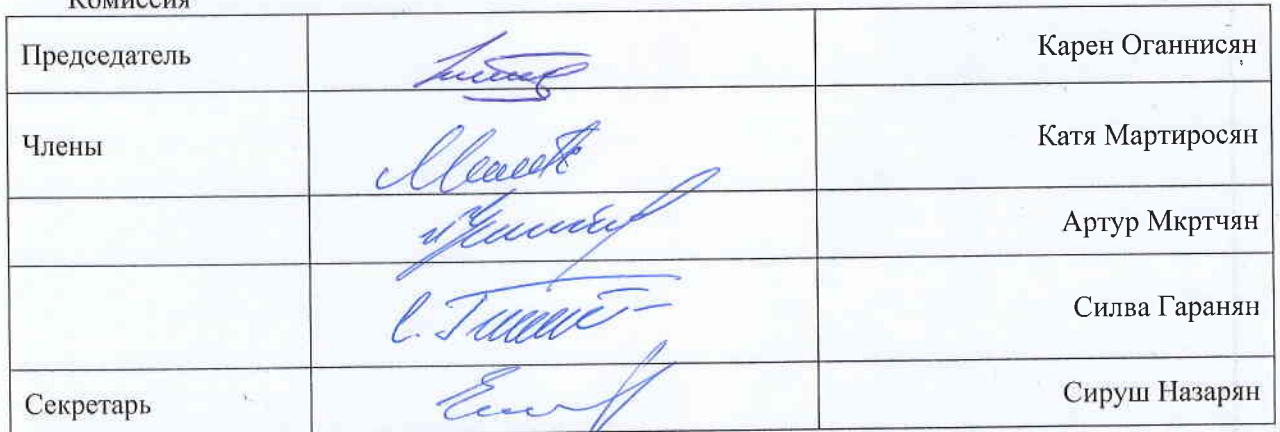 Комиссия
Председатель Карен Оганнисян
Члены Катя Мартиросян
Артур Мкртчян
Силва Гаранян
Секретарь Сируш Назарян